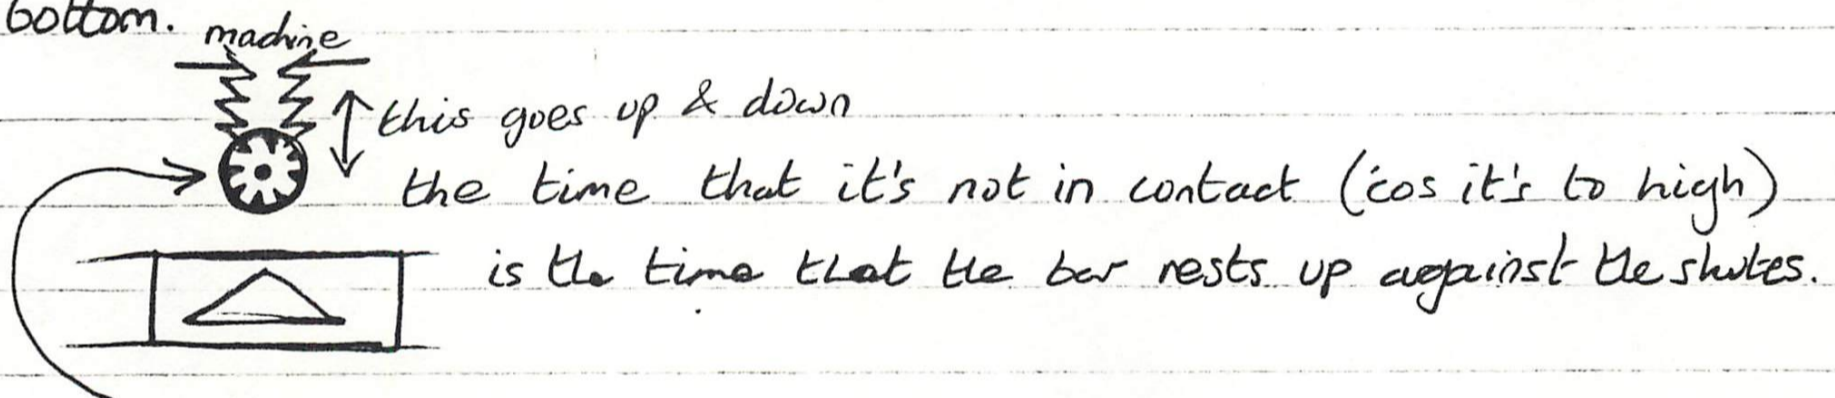 bottom.
machine
this goes up & down
the time that it's not in contact ('cos it's to high)
is the time that the bar rests up against the shutes.